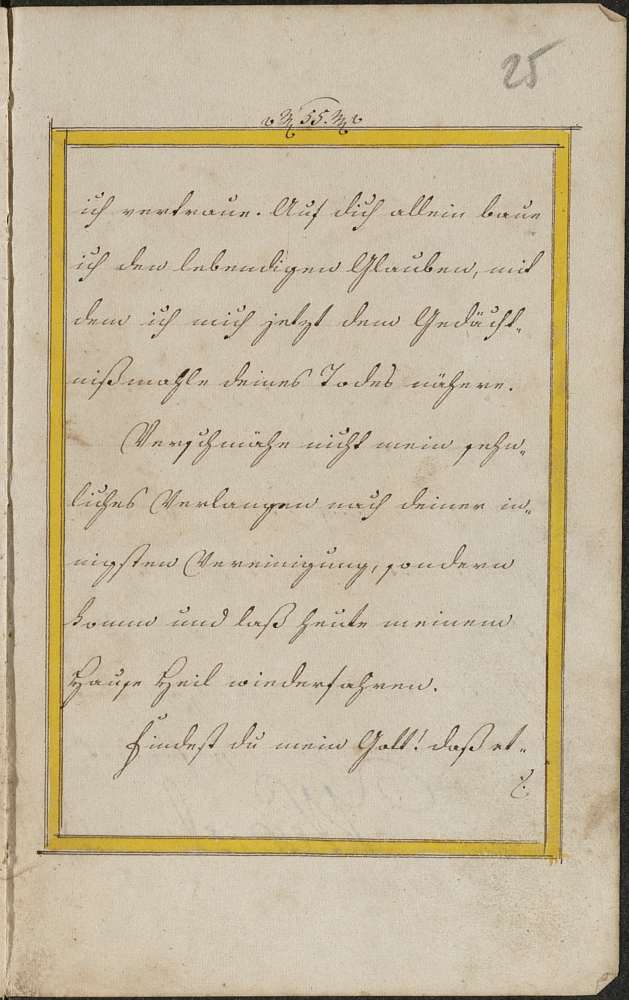 25
55.
ich vertraue. Auf dich allein baue
ich den lebendigen Glauben, mit
dem ich mich jetzt dem Gedächt-
nißmahle deines Todes nähere.
Verschmähe nicht mein sehn-
liches Verlangen nach deiner in-
nigsten Vereinigung, sondern
komm und laß heute meinem
Hause Heil wiederfahren.
Findest du mein Gott! daß et-